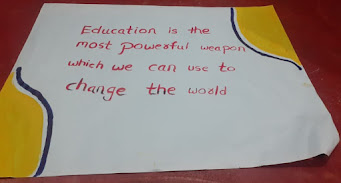 Education is the
most powerful weapon
which we can use to
change the world